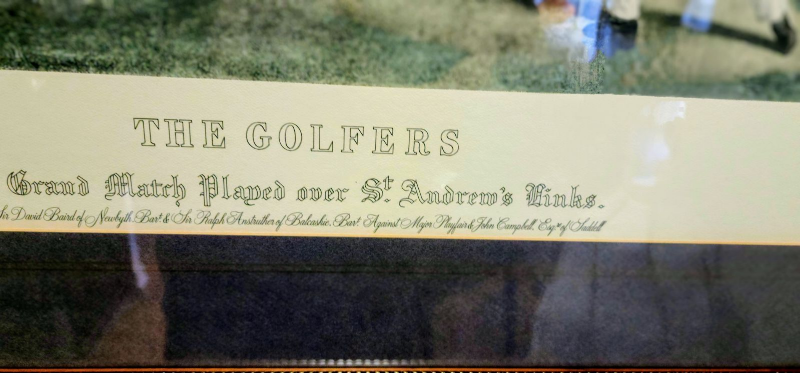 THE GOLFERS
Grand Match Played over St. Andrew's Links.
Sir David Baird of Newbyth, Bart. & Sir Ralph Anstruther of Balcaskie, Bart. Against Major Playfair & John Campbell, Esqre. of Saddell